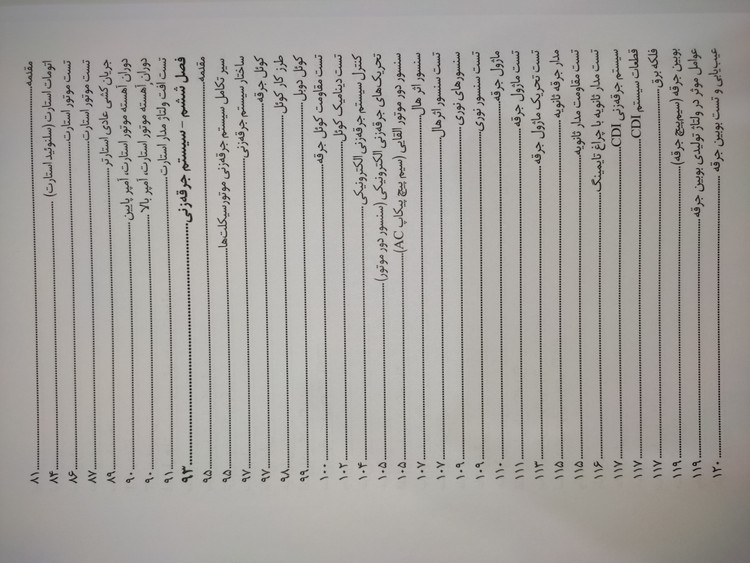 مقدمه ... ۸۱
اتومات استارت (سلنوئید استارت) ... ۸۴
تست موتور استارت ... ۸۶
تست موتور استارت ... ۸۷
جریان کشی عادی استارتر ... ۸۹
دوران آهسته موتور استارت، آمپر پایین ... ۹۰
دوران آهسته موتور استارت، آمپر بالا ... ۹۰
تست افت ولتاژ مدار استارت ... ۹۱
فصل ششم - سیستم جرقه‌زنی ... ۹۳
مقدمه ... ۹۵
سیر تکامل سیستم جرقه‌زنی موتورسیکلت‌ها ... ۹۵
ساختار سیستم جرقه‌زنی ... ۹۷
کوئل جرقه ... ۹۷
طرز کار کوئل ... ۹۸
کوئل دوبل ... ۹۹
تست مقاومت کوئل جرقه ... ۱۰۰
تست دینامیک کوئل ... ۱۰۲
کنترل سیستم جرقه‌زنی الکترونیکی ... ۱۰۴
تحریک‌های جرقه‌زنی الکترونیکی (سنسور دور موتور) ... ۱۰۵
سنسور دور موتور القایی (سیم پیچ پیکاپ AC) ... ۱۰۵
سنسور اثر هال ... ۱۰۷
تست سنسور اثرهال ... ۱۰۷
سنسورهای نوری ... ۱۰۹
تست سنسور نوری ... ۱۰۹
ماژول جرقه ... ۱۱۰
تست ماژول جرقه ... ۱۱۱
تست تحریک ماژول جرقه ... ۱۱۳
مدار جرقه ثانویه ... ۱۱۵
تست مقاومت مدار ثانویه ... ۱۱۵
تست مدار ثانویه با چراغ تایمینگ ... ۱۱۶
سیستم جرقه‌زنی با CDI ... ۱۱۷
قطعات سیستم CDI ... ۱۱۷
فلکه برق ... ۱۱۷
بوبین جرقه (سیم‌پیچ جرقه) ... ۱۱۹
عوامل موثر در ولتاژ تولیدی بوبین جرقه ... ۱۱۹
عیب‌یابی و تست بوبین جرقه ... ۱۲۰